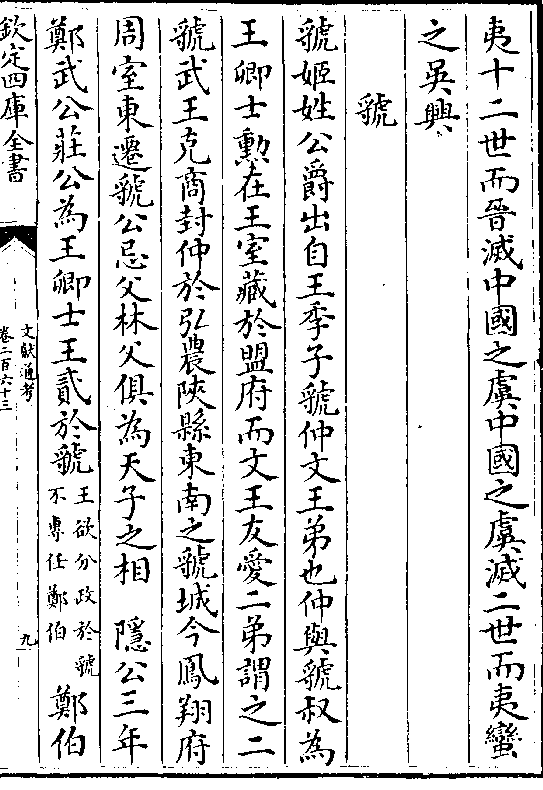 夷十二世而晉滅中國之虞中國之虞滅二世而夷蠻
之吳興
虢
虢姬姓公爵出自王季子虢仲文王弟也仲與虢叔為
王卿士勲在王室藏於盟府而文王友愛二弟謂之二
虢武王克商封仲於弘農陜縣東南之虢城今鳳翔府
周室東遷虢公忌父林父俱為天子之相　隱公三年
鄭武公莊公為王卿士王貳於虢王欲分政於虢不專任鄭伯鄭伯
欽定四庫全書
文獻通考
卷二百六十三
九